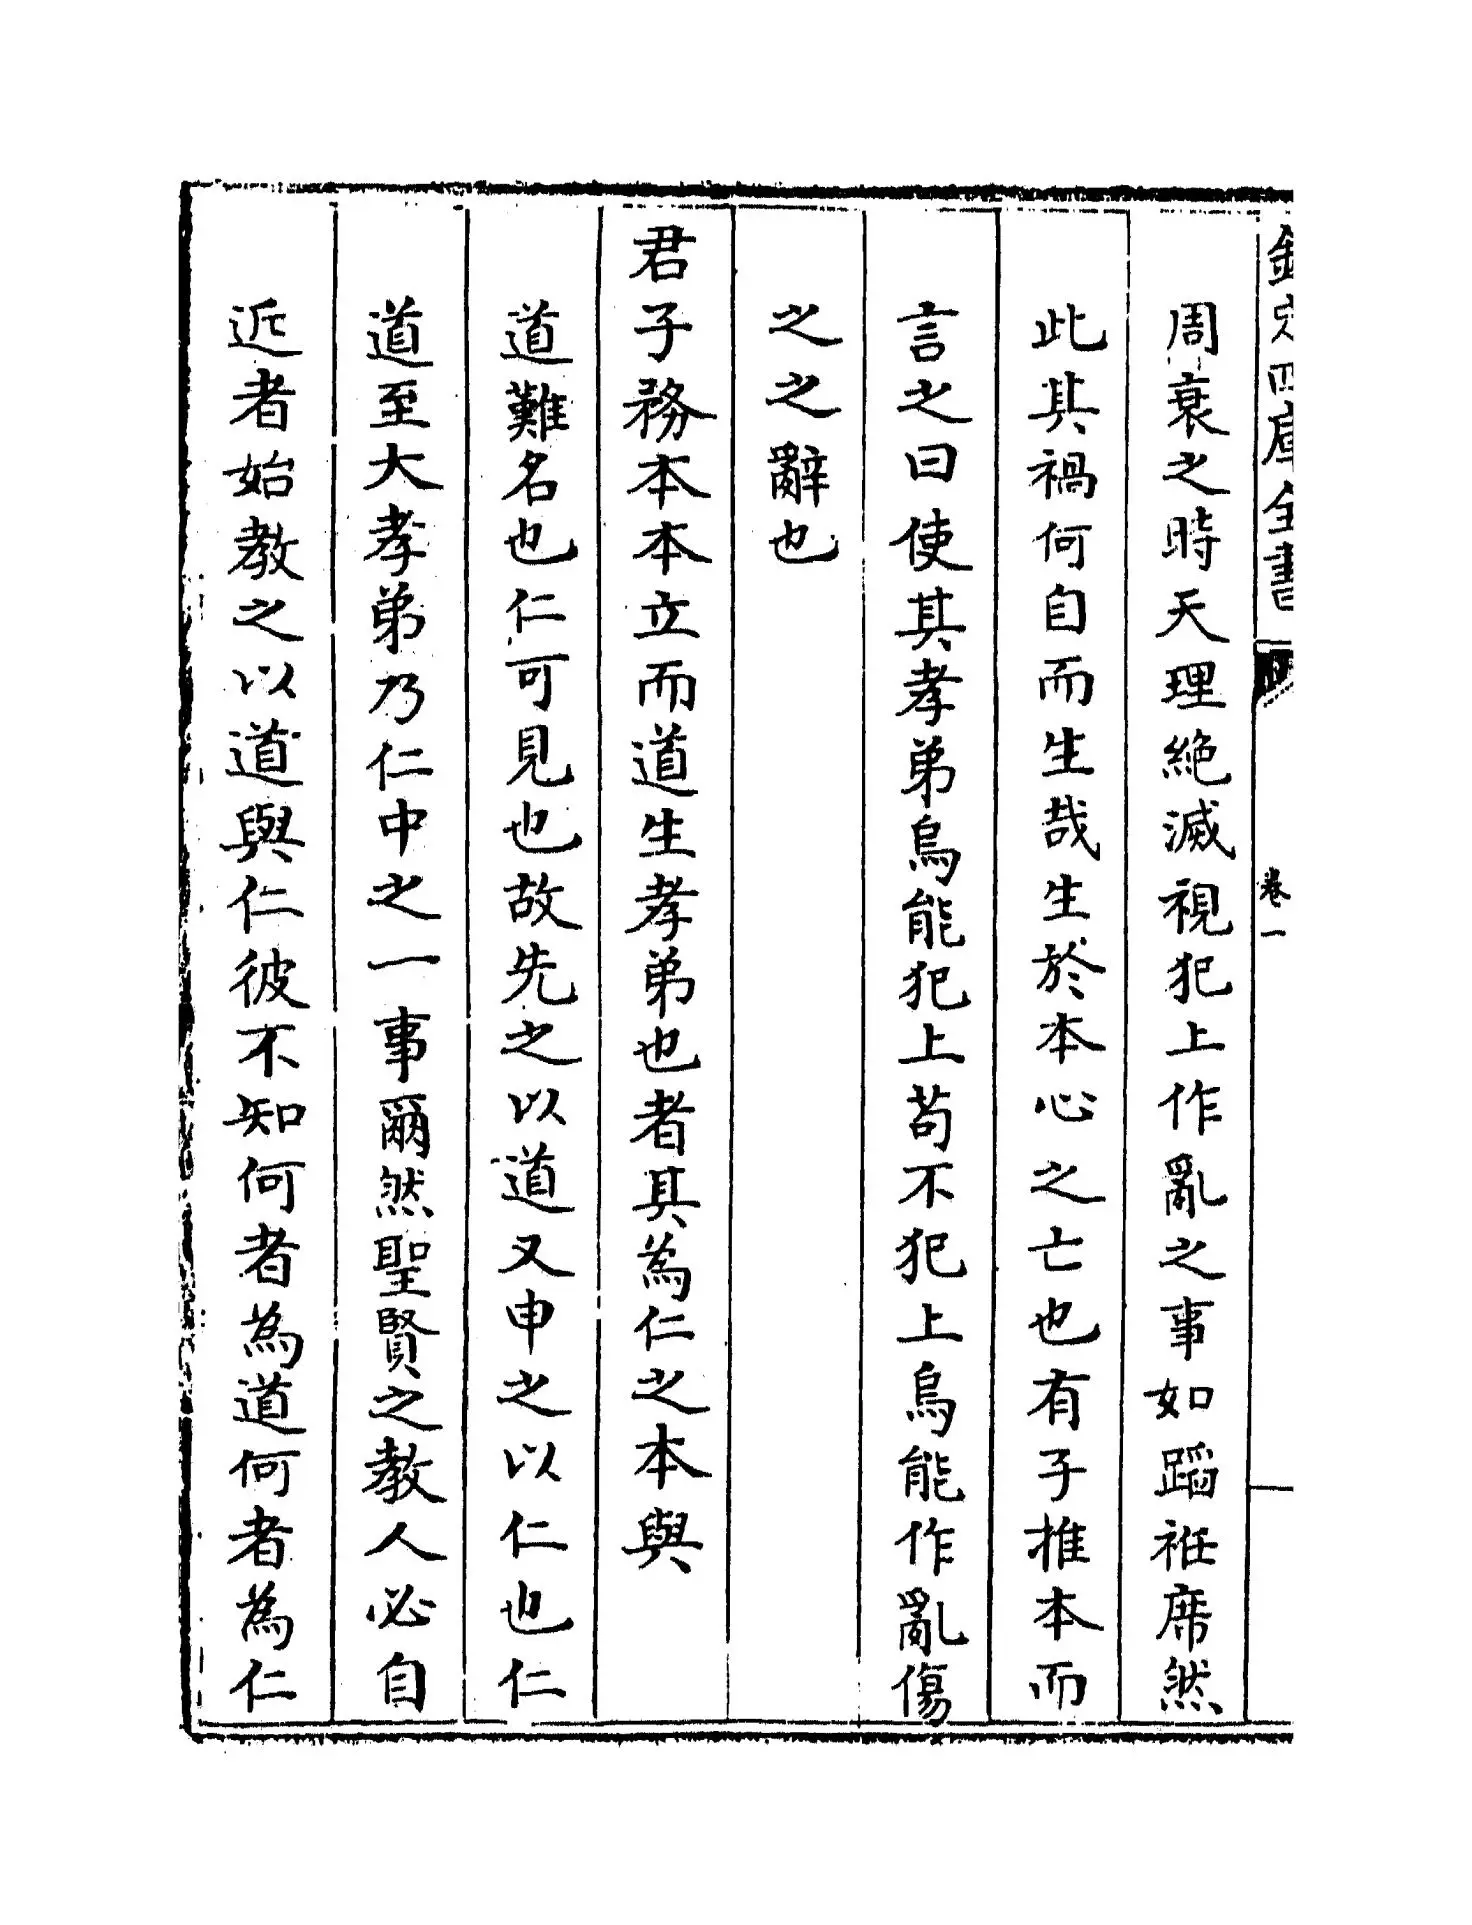 欽定四庫全書
卷一
周衰之時天理絶滅視犯上作亂之事如蹈袵席然
此其禍何自而生哉生於本心之亡也有子推本而
言之曰使其孝弟烏能犯上苟不犯上烏能作亂傷
之之辭也
君子務本本立而道生孝弟也者其為仁之本與
道難名也仁可見也故先之以道又申之以仁也仁
道至大孝弟乃仁中之一事爾然聖賢之教人必自
近者始教之以道與仁彼不知何者為道何者為仁